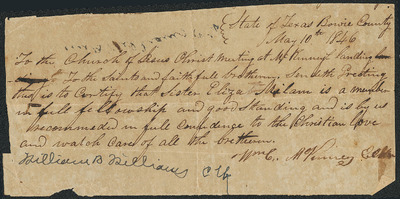 State of Texas Bowie County
May 10th 1846
To the Church of Jesus Christ meeting at McKinney Landing
To the Saints and faithfull brethering Sendeth Greeting
this is to Certify that Sister Eliza Milam is a member
in full fellowship and good Standing and is by us
recommended in full Confidence to the Christian love
and watch Care of all the brethern.
Wm C. McKinney Elder
William B Williams Clk